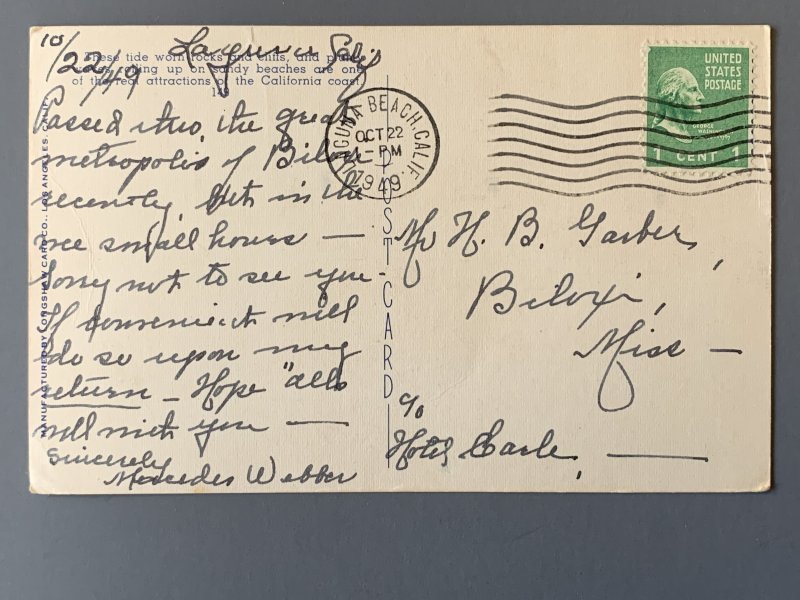 10/22/49
Laguna Calif
These tide worn rocks and cliffs, and
rolling up on sandy beaches are one
of the real attractions of the California coast.
Passed thro, the great
metropolis of Biloxi
recently, but in the
wee small hours —
Sorry not to see you
If convenient will
do so upon my
return — Hope "all's
well with you —
Sincerely
Mercedes Webber
MANUFACTURED BY LONGSHAW CARD CO., LOS ANGELES, CALIF.
POST-CARD
LAGUNA BEACH, CALIF.
OCT 22
1 - PM
1949
UNITED
STATES
POSTAGE
GEORGE WASHINGTON
1 CENT 1
Mr H. B. Garber,
Biloxi,
Miss —
c/o
Hotel Earle,